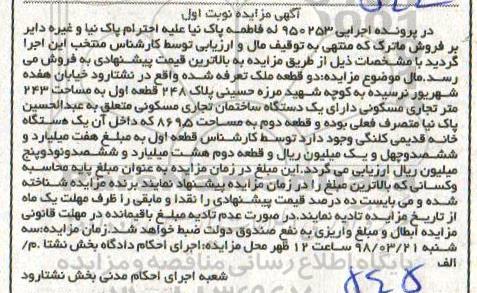 آگهی مزایده نوبت اول
در پرونده اجرایی ۹۵۰۲۵۳ له فاطمه پاک نیا علیه احترام پاک نیا و غیره دایر
بر فروش ماترک که منتهی به توقیف مال و ارزیابی توسط کارشناس منتخب این اجرا
گردید با مشخصات ذیل از طریق مزایده به بالاترین قیمت پیشنهادی به فروش می
رسد.مال موضوع مزایده:دو قطعه ملک تعرفه شده واقع در نشتارود خیابان هفده
شهریور نرسیده به کوچه شهید مرزه حسینی پلاک ۲۴۸ قطعه اول به مساحت ۲۴۳
متر تجاری مسکونی دارای یک دستگاه ساختمان تجاری مسکونی متعلق به عبدالحسین
پاک نیا متصرف فعلی بوده و قطعه دوم به مساحت ۸۶۹.۵ که داخل آن یک دستگاه
خانه قدیمی کلنگی وجود دارد توسط کارشناس قطعه اول به مبلغ هفت میلیارد و
ششصدوچهل و یک میلیون ریال و قطعه دوم هشت میلیارد و ششصدونودوپنج
میلیون ریال ارزیابی می گردد.این مبلغ در زمان مزایده به عنوان مبلغ پایه محاسبه
وکسانی که بالاترین مبلغ را در زمان مزایده پیشنهاد نمایند برنده مزایده شناخته
شده و می بایست ده درصد قیمت پیشنهادی را نقدا و مابقی را ظرف مهلت یک ماه
از تاریخ مزایده تادیه نمایند.در صورت عدم تادیه مبلغ باقیمانده در مهلت قانونی
مزایده ابطال و مبلغ واریزی به نفع صندوق دولت ضبط خواهد شد.زمان مزایده:سه
شنبه ۹۸/۰۳/۲۱ ساعت ۱۲ ظهر محل مزایده:اجرای احکام دادگاه بخش نشتا .م/
الف
پایگاه اطلاع رسانی مناقصه و مزایده
شعبه اجرای احکام مدنی بخش نشتارود